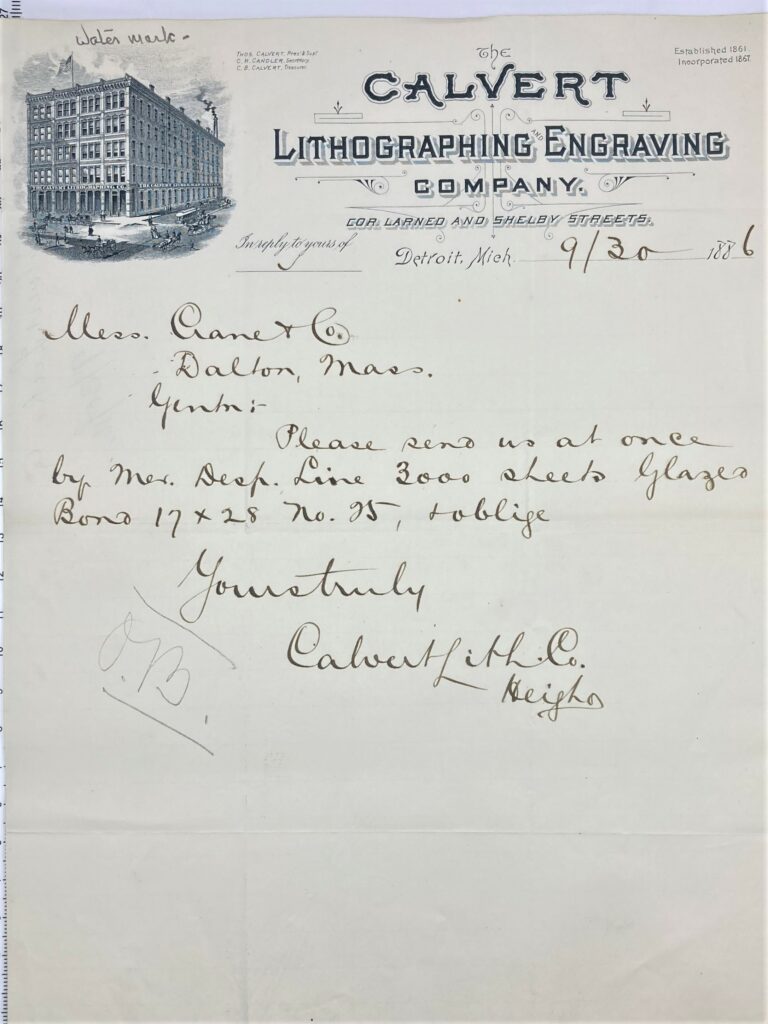 Water mark -
Thos. Calvert, Pres't & Supt.
C. H. Candler, Secretary.
C. B. Calvert, Treasurer.
Established 1861.
Incorporated 1867.
The
Calvert
Lithographing and Engraving
Company.
Cor. Larned and Shelby Streets.
In reply to yours of
Detroit, Mich. 9/30 1886
The Calvert Lithographing Co.
Mess. Crane & Co.
Dalton, Mass.
Gentn:-
Please send us at once
by Mer. Desp. Line 3000 sheets Glazed
Bond 17 x 28 No. 25, & oblige
Yours truly
Calvert Lith. Co.